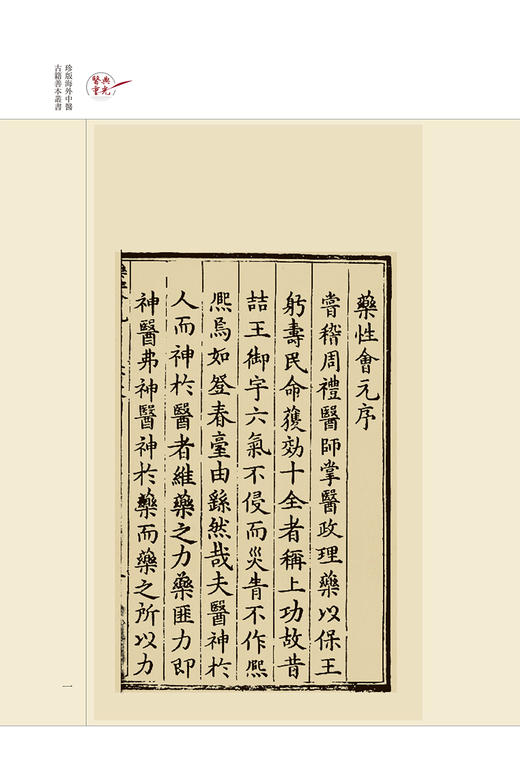 珍版海外中醫
古籍善本叢書
醫典
重光
藥性會元序
嘗稽周禮醫師掌醫政理藥以保王
躬壽民命獲効十全者稱上功故昔
喆王御宇六氣不侵而災眚不作熙
熙焉如登春臺由繇然哉夫醫神於
人而神於醫者維藥之力藥匪力即
神醫弗神醫神於藥而藥之所以力
一